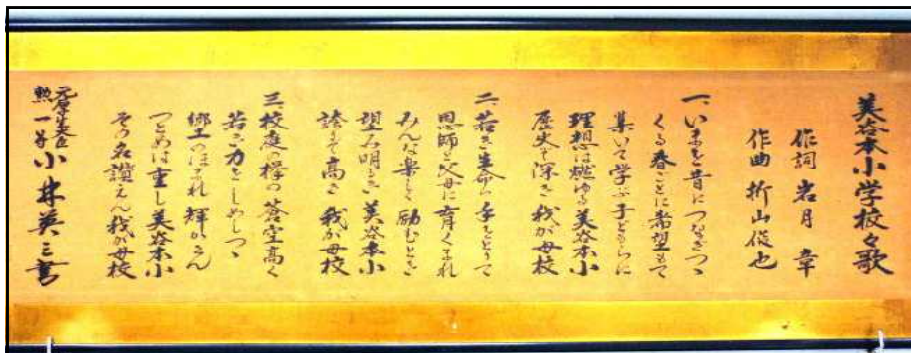 美谷本小学校々歌
作詞 岩月 章
作曲 折山俊也
一、いまを昔につなぎつゝ
くる春ごとに希望もて
集いて学ぶ子どもらに
理想は燃ゆる美谷本小
歴史も深き我が母校
二、若き生命の手をとりて
恩師と父母に育くまれ
みんな楽しく励むとき
望み明るき美谷本小
誇りぞ高き我が母校
三、校庭の欅の蒼空高く
若き力をしめしつゝ
郷土のほまれ輝かさん
つとめは重し美谷本小
その名讃えん我が母校
元厚生大臣
勲一等小林英三書